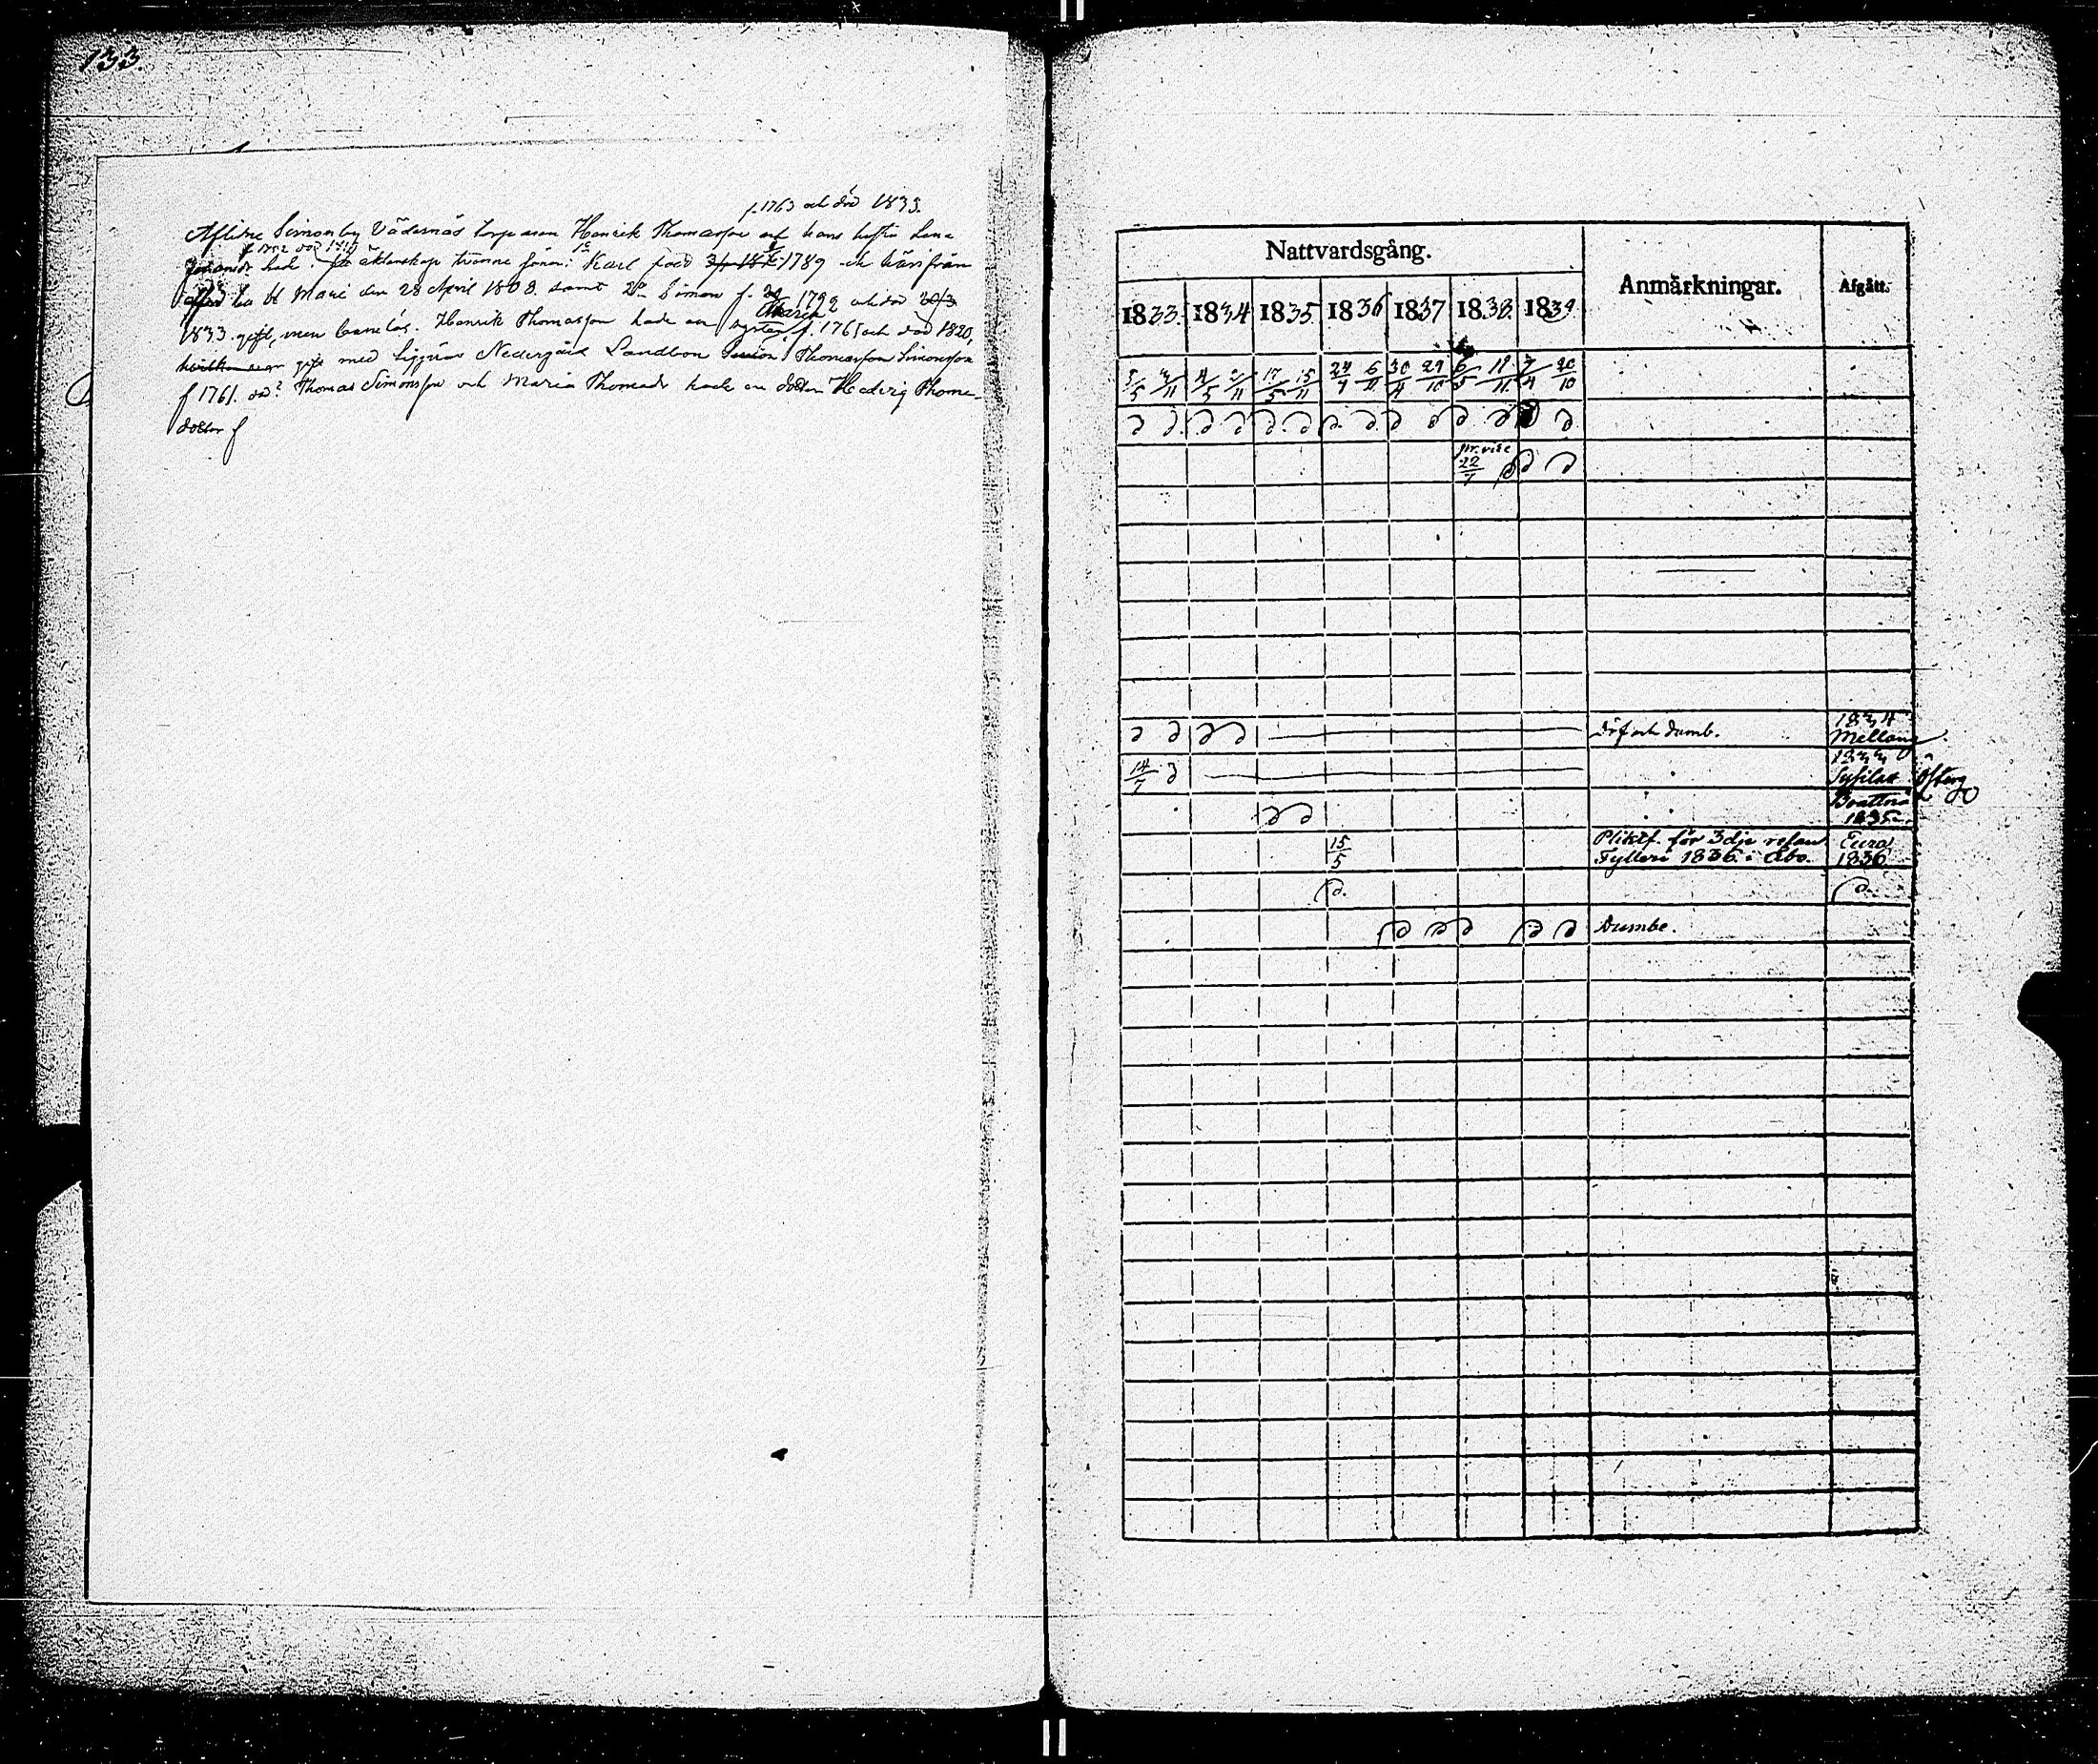 133.
f. 1763 och död 1833.
Aflidne Simonby Vädernäs Torparen Henrik Thomasson och hans hustru Lena
f 1752 död 1810
Johansdr hade äktenskap tvänne söner: 1o Karl född 1789 och härifrån
till St Marie den 28 April 1808. samt 2o Simon f. 1792 och död 30/3
Maria
1833 gift, men barnlös. Henrik Thomasson hade en syster f. 1765 och död 1820,
gift med Siggnäs Nedergård Landbon Thomasson Simonsson
f 1761. död? Thomas Simonsson och Maria Thomasdr hade en dotter Hedvig Thoma-
dotter f
Nattvardsgång. Anmärkningar. Afgått.
1833. 1834 1835. 1836 1837 1838. 1839
5/5 3/11 4/5 2/11 17/5 15/11 24/7 6/11 30/4 29/10 6/5 11/11 7/4 20/10
pr. vice
22/7
Döf och dumb. 1834 Mellang
14/7 1833
Sysilax Öfterg
Brattnä do
1835.
15/5 Pliktf. för 3dje resan Eura
Fylleri 1836 i Åbo. 1836
Dumbe.